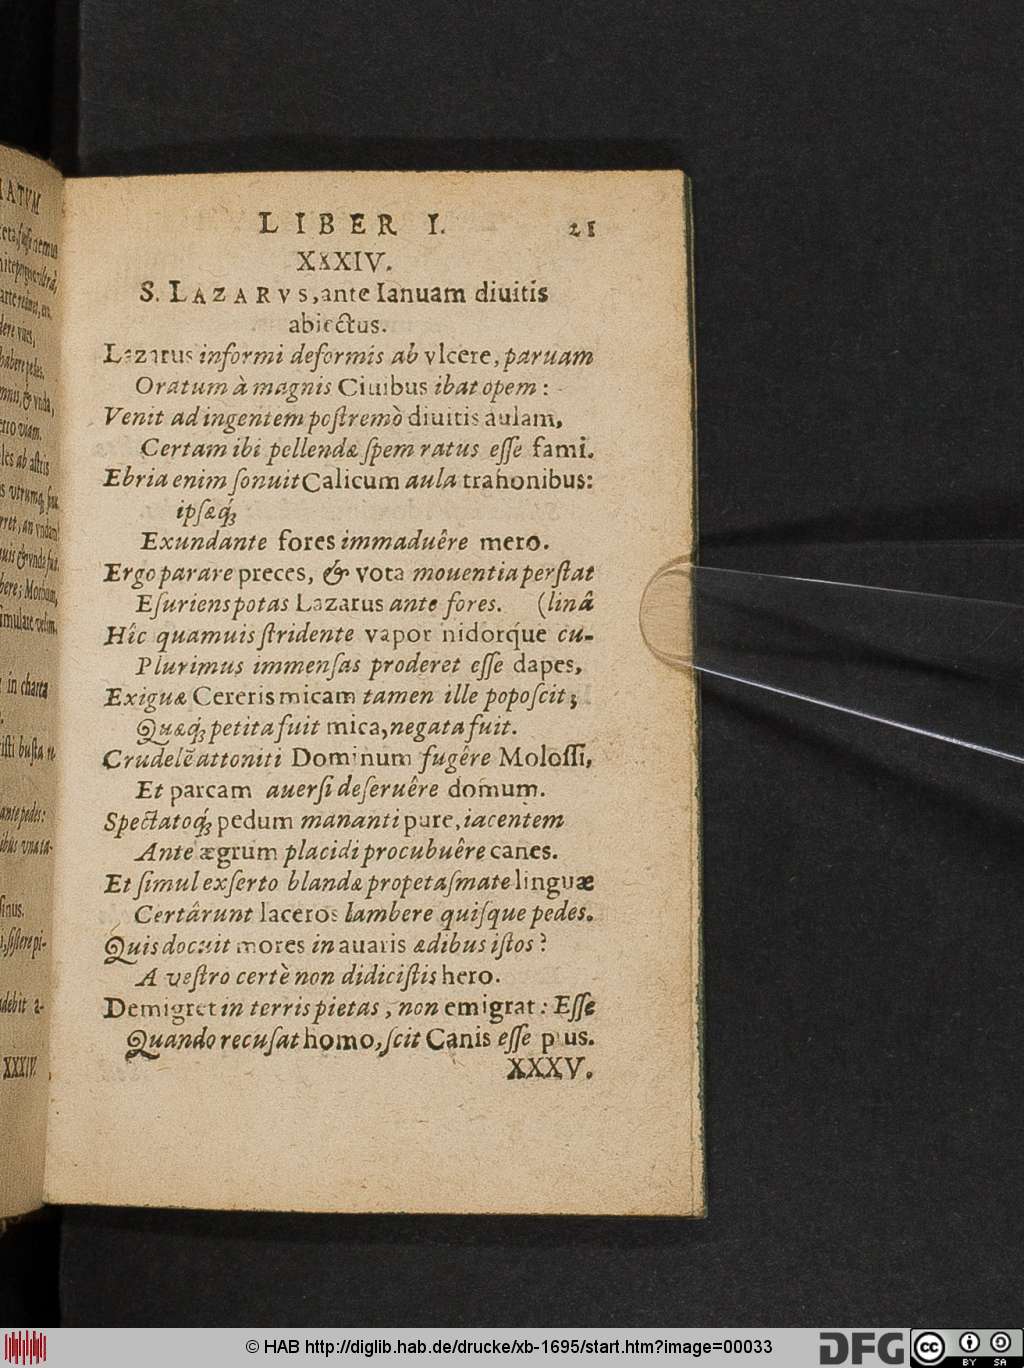 LIBER I. 21
XXXIV.
S. LAZARVS, ante Ianuam diuitis
abiectus.
Lazarus informi deformis ab vlcere, paruam
Oratum à magnis Ciuibus ibat opem :
Venit ad ingentem postremò diuitis aulam,
Certam ibi pellendæ spem ratus esse fami.
Ebria enim sonuit Calicum aula trahonibus:
ipsæq́;
Exundante fores immaduêre mero.
Ergo parare preces, & vota mouentia perstat
Esuriens potas Lazarus ante fores. (linâ
Hîc quamuis stridente vapor nidorq́ue cu-
Plurimus immensas proderet esse dapes,
Exiguæ Cereris micam tamen ille poposcit;
Quæq́; petita fuit mica, negata fuit.
Crudelẽ attoniti Dominum fugêre Molossi,
Et parcam auersi deseruêre domum.
Spectatoq́; pedum mananti pure, iacentem
Ante ægrum placidi procubuêre canes.
Et simul exserto blandæ propetasmate linguæ
Certârunt laceros lambere quisque pedes.
Quis docuit mores in auaris ædibus istos ?
A vestro certè non didicistis hero.
Demigret in terris pietas, non emigrat : Esse
Quando recusat homo, scit Canis esse pius.
XXXV.
ante pedes:
sinus.
XXXIV.
© HAB http://diglib.hab.de/drucke/xb-1695/start.htm?image=00033
DFG
cc
BY SA